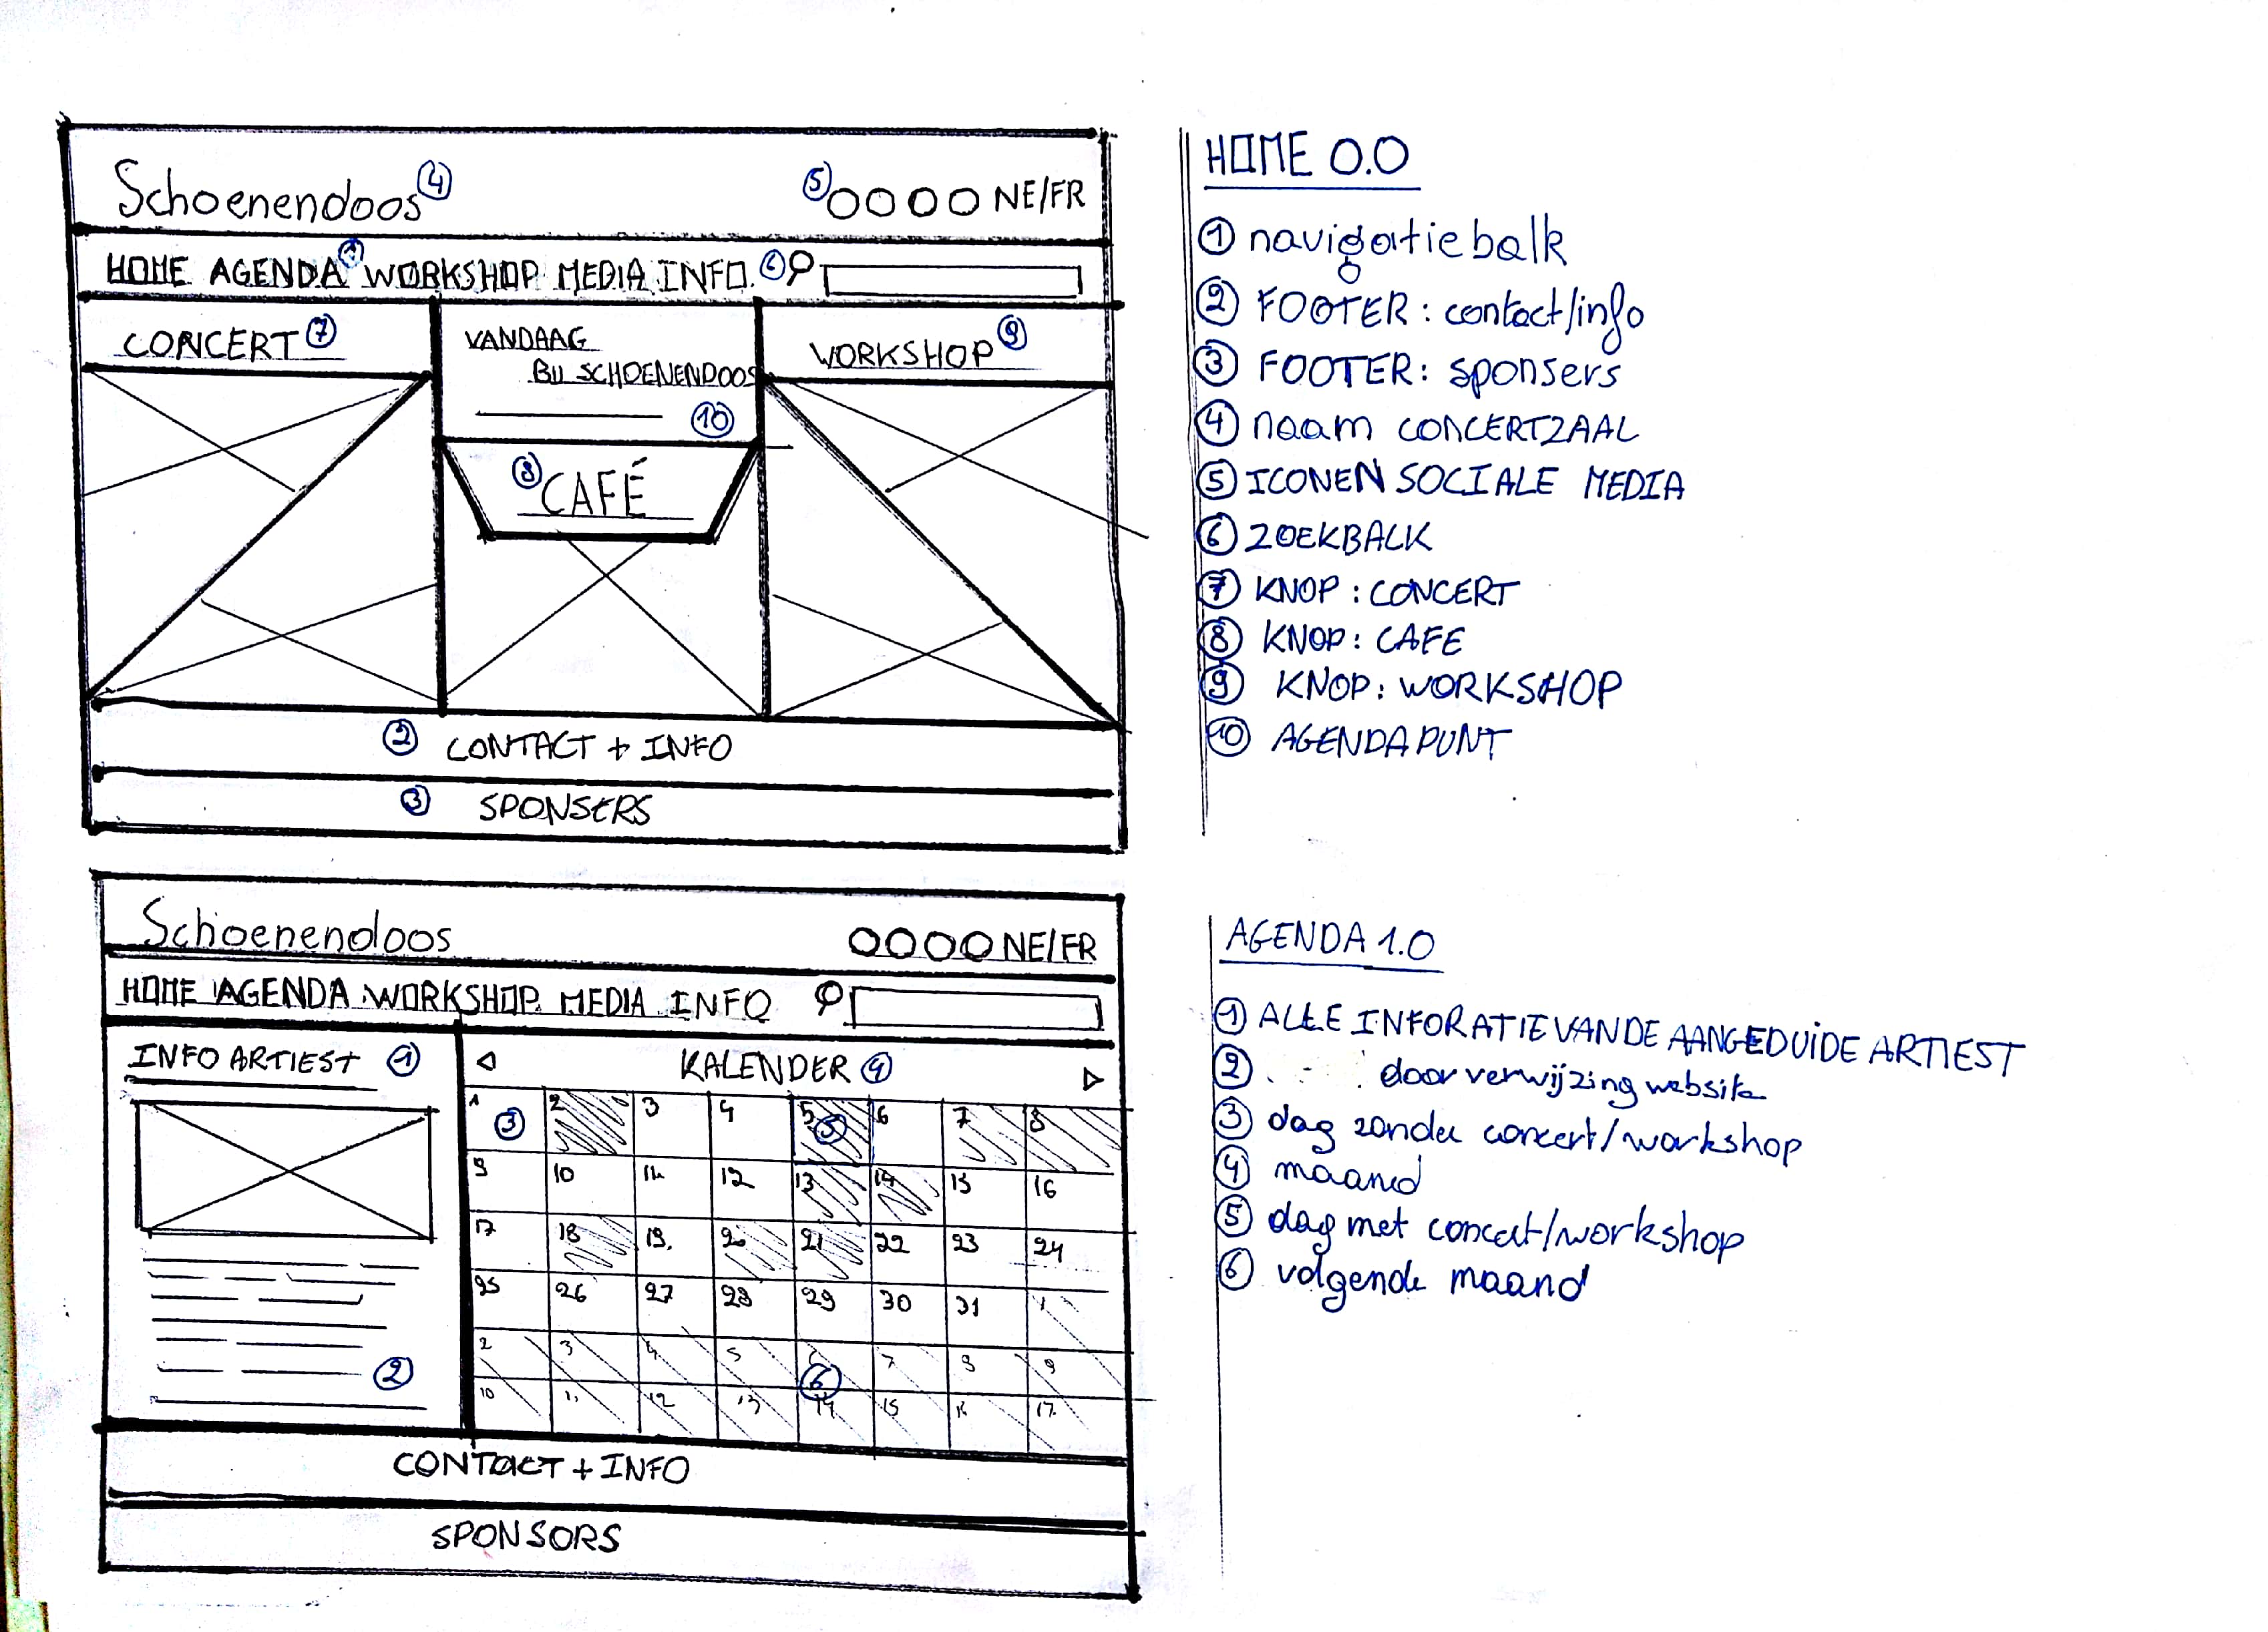 Schoenendoos ④
⑤ NE/FR
HOME AGENDA ① WORKSHOP MEDIA INFO. ⑥
CONCERT ⑦
VANDAAG
BIJ SCHOENENDOOS
⑩
⑧ CAFÉ
WORKSHOP ⑨
② CONTACT + INFO
③ SPONSERS
HOME 0.0
① navigatiebalk
② FOOTER: contact/info
③ FOOTER: sponsers
④ naam CONCERTZAAL
⑤ ICONEN SOCIALE MEDIA
⑥ ZOEKBALK
⑦ KNOP: CONCERT
⑧ KNOP: CAFE
⑨ KNOP: WORKSHOP
⑩ AGENDAPUNT
Schoenendoos
NE/FR
HOME AGENDA WORKSHOP MEDIA INFO
INFO ARTIEST ①
②
KALENDER ④
1 ③ 2 3 4 5 ⑤ 6 7 8
9 10 11 12 13 14 15 16
17 18 19. 20 21 22 23 24
25 26 27 28 29 30 31 1
2 3 4 5 6 7 8 9
⑥
10 11 12 13 14 15 16 17
CONTACT + INFO
SPONSORS
AGENDA 1.0
① ALLE INFORATIE VAN DE AANGEDUIDE ARTIEST
② doorverwijzing website
③ dag zonder concert/workshop
④ maand
⑤ dag met concert/workshop
⑥ volgende maand